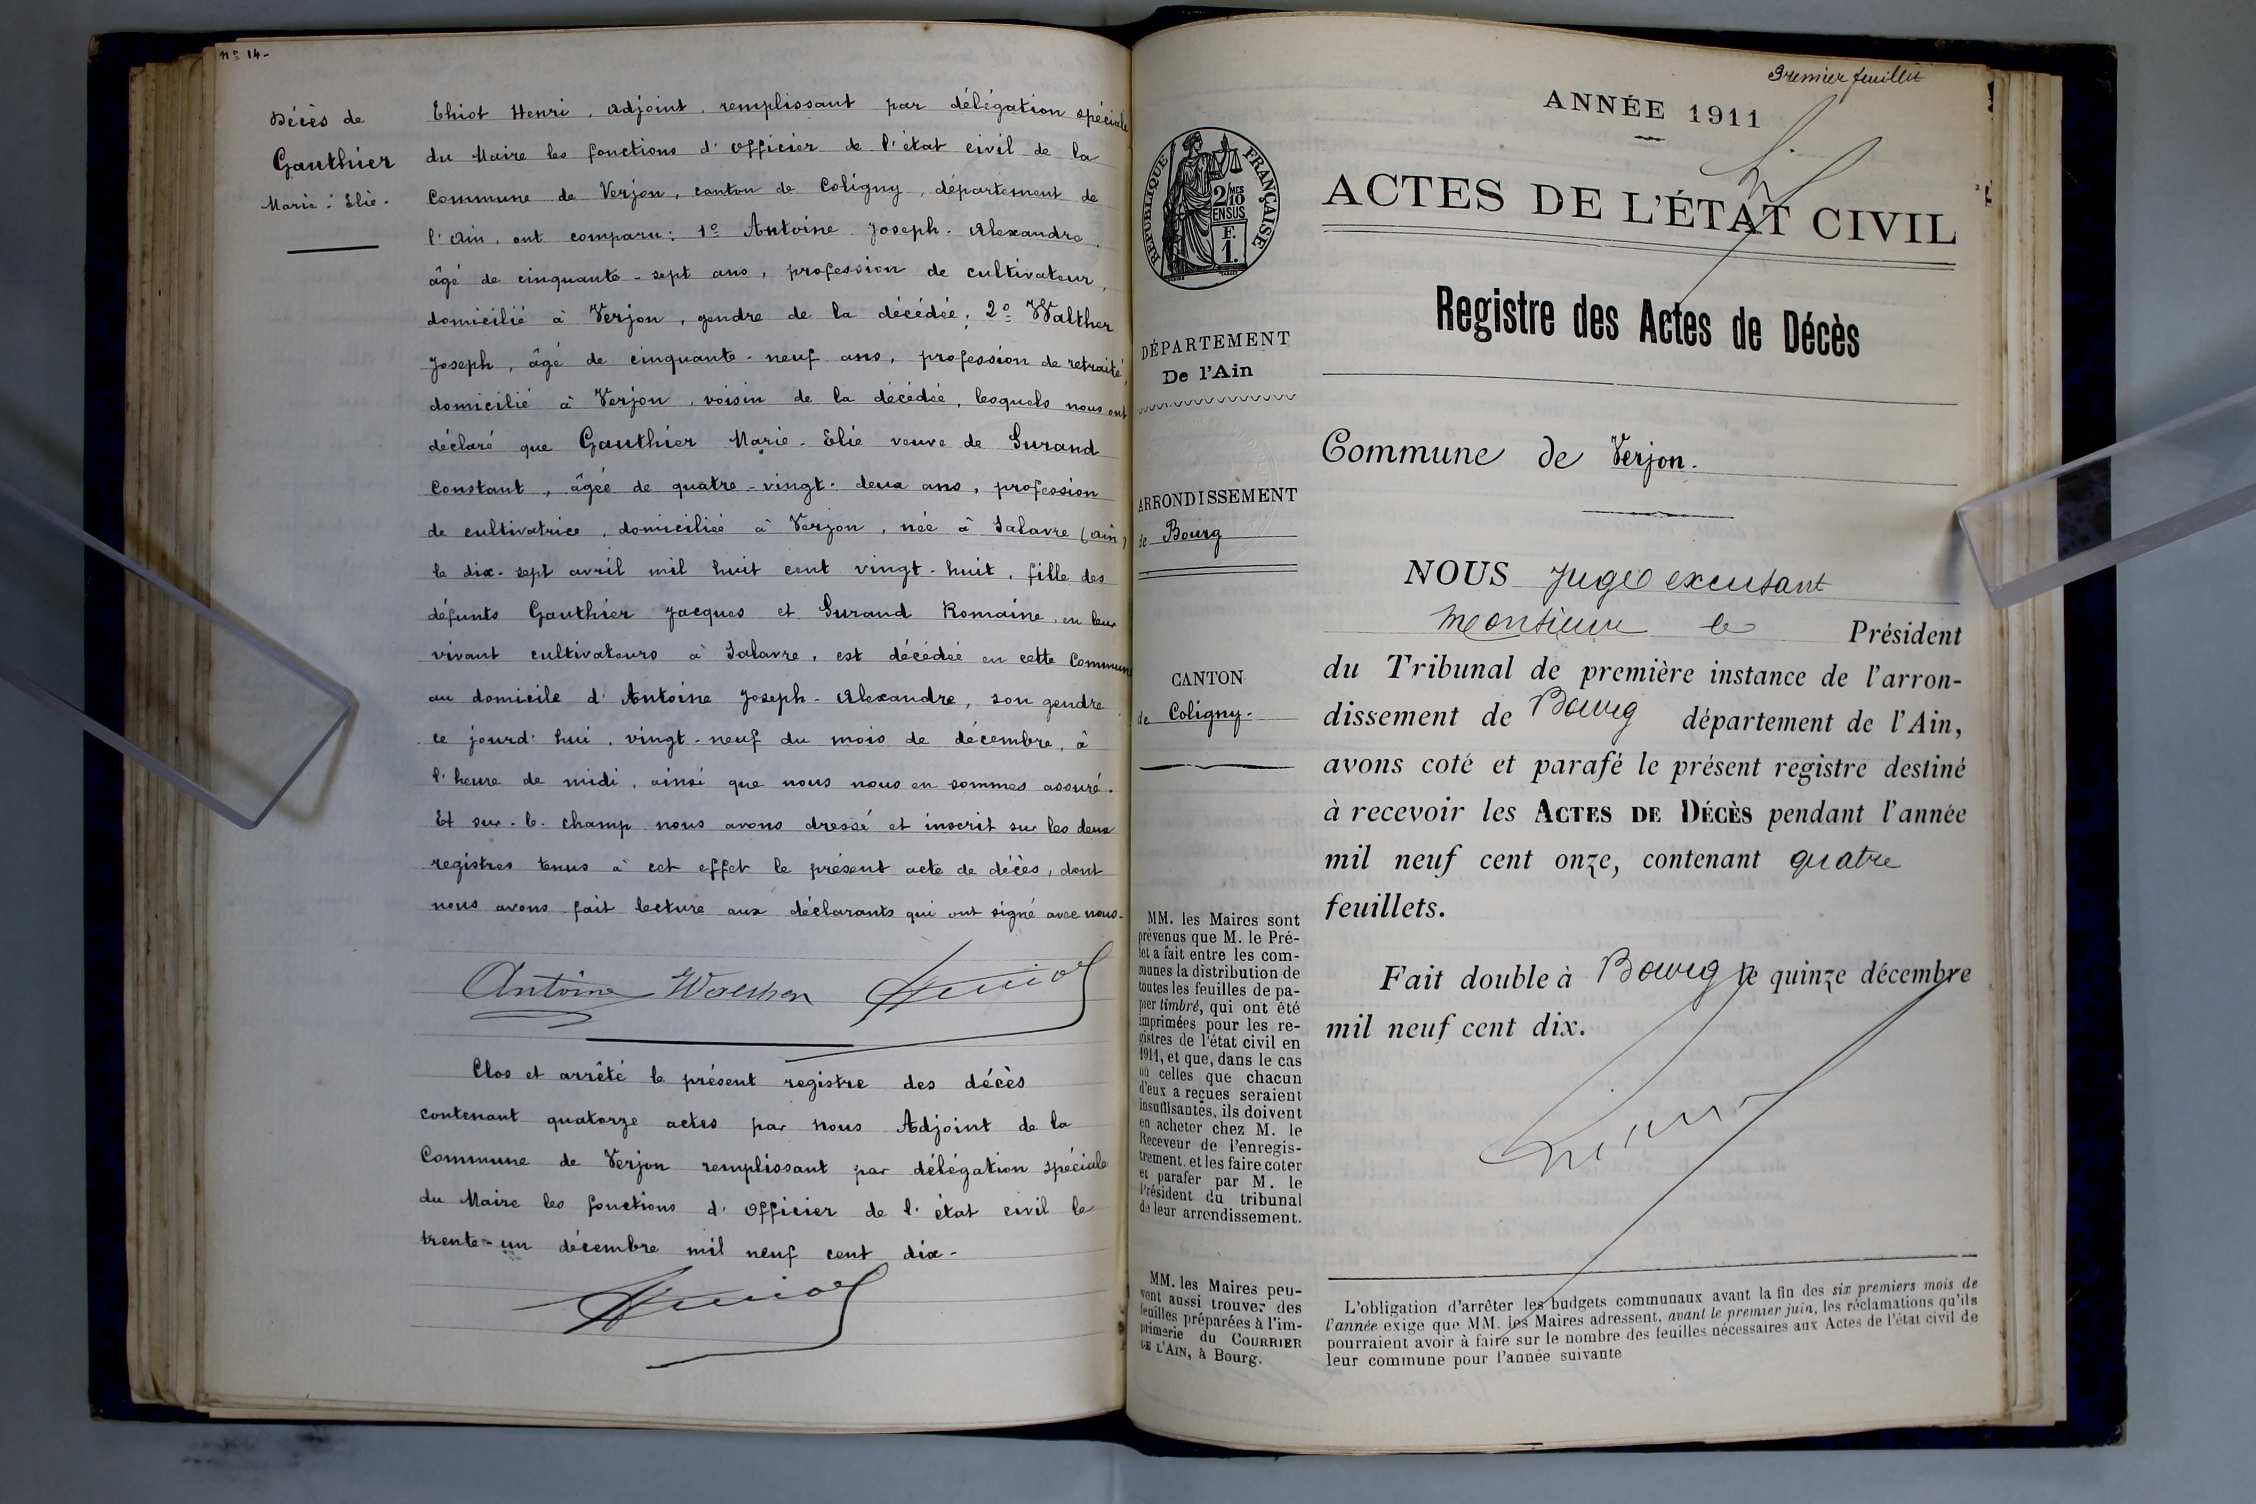 n° 14-
Décès de
Gauthier
Marie-Elie.
Thiot Henri, adjoint, remplissant par délégation spéciale
du Maire les fonctions d'officier de l'état civil de la
Commune de Verjon, canton de Coligny, département de
l'Ain, ont comparu: 1° Antoine Joseph-Alexandre,
âgé de cinquante-sept ans, profession de cultivateur,
domicilié à Verjon, gendre de la décédée; 2° Walther
Joseph, âgé de cinquante-neuf ans, profession de retraité,
domicilié à Verjon, voisin de la décédée, lesquels nous ont
déclaré que Gauthier Marie-Elie veuve de Surand
Constant, âgée de quatre-vingt-deux ans, profession
de cultivatrice, domiciliée à Verjon, née à Salavre (Ain)
le dix-sept avril mil huit cent vingt-huit, fille des
défunts Gauthier Jacques et Surand Romaine, en leur
vivant cultivateurs à Salavre, est décédée en cette Commune
au domicile d'Antoine Joseph-Alexandre, son gendre,
ce jourd'hui, vingt-neuf du mois de décembre, à
l'heure de midi, ainsi que nous nous en sommes assuré.
Et sur-le-champ nous avons dressé et inscrit sur les deux
registres tenus à cet effet le présent acte de décès, dont
nous avons fait lecture aux déclarants qui ont signé avec nous.
Antoine Walther
Clos et arrêté le présent registre des décès
contenant quatorze actes par nous Adjoint de la
Commune de Verjon remplissant par délégation spéciale
du Maire les fonctions d'Officier de l'état civil le
trente-un décembre mil neuf cent dix-
Premier feuillet
ANNÉE 1911
RÉPUBLIQUE FRANÇAISE
2/10 MES
EN SUS
F.
1.
ACTES DE L'ÉTAT CIVIL
Registre des Actes de Décès
DÉPARTEMENT
De l'Ain
Commune de Verjon.
ARRONDISSEMENT
de Bourg
CANTON
de Coligny.
NOUS Juge excusant
Monsieur le Président
du Tribunal de première instance de l'arron-
dissement de Bourg département de l'Ain,
avons coté et parafé le présent registre destiné
à recevoir les ACTES DE DÉCÈS pendant l'année
mil neuf cent onze, contenant quatre
feuillets.
Fait double à Bourg le quinze décembre
mil neuf cent dix.
MM. les Maires sont
prévenus que M. le Pré-
fet a fait entre les com-
munes la distribution de
toutes les feuilles de pa-
pier timbré, qui ont été
imprimées pour les re-
gistres de l'état civil en
1911, et que, dans le cas
où celles que chacun
d'eux a reçues seraient
insuffisantes, ils doivent
en acheter chez M. le
Receveur de l'enregis-
trement, et les faire coter
et parafer par M. le
Président du tribunal
de leur arrondissement.
MM. les Maires peu-
vent aussi trouver des
feuilles préparées à l'im-
primerie du COURRIER
DE L'AIN, à Bourg.
L'obligation d'arrêter les budgets communaux avant la fin des six premiers mois de
l'année exige que MM. les Maires adressent, avant le premier juin, les réclamations qu'ils
pourraient avoir à faire sur le nombre des feuilles nécessaires aux Actes de l'état civil de
leur commune pour l'année suivante